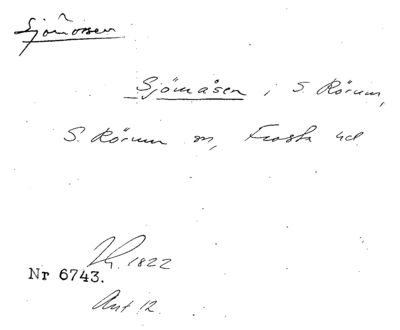 Sjömossen
Sjömåsen, S. Rörum,
S. Rörum sn, Frosta hd
1822
Nr 6743.
Ant 12.